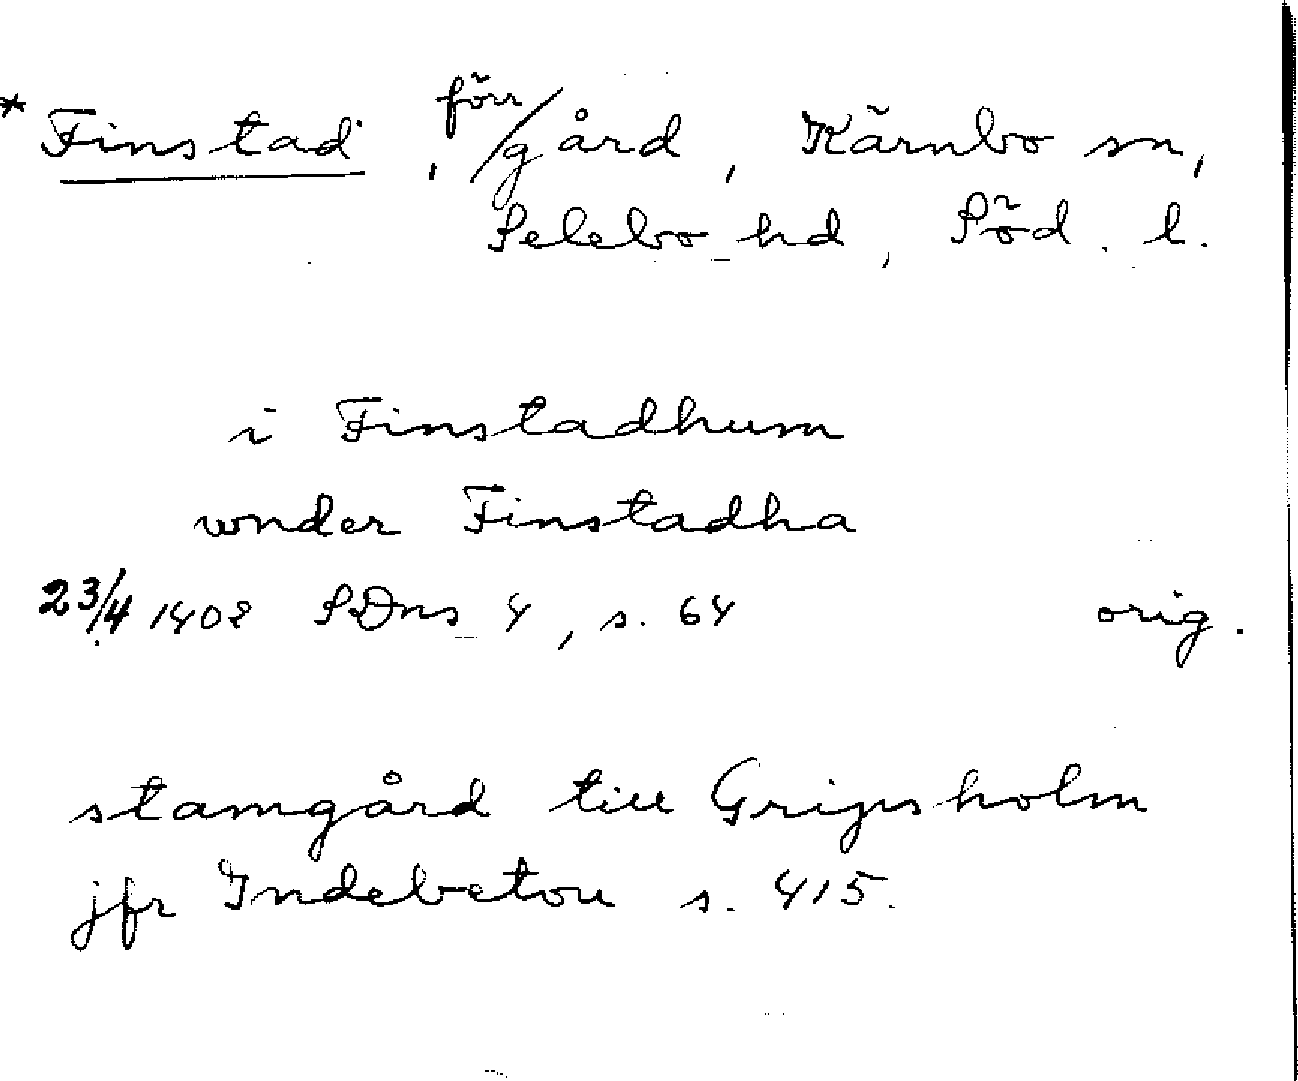 * Finstad, förr /gård, Kärnbo sn,
Selebo hd, Söd. l.
i Finstadhum
wnder Finstadha
23/4 1402 SDns 4, s. 64 orig.
stamgård till Gripsholm
jfr Indebetou s. 415.